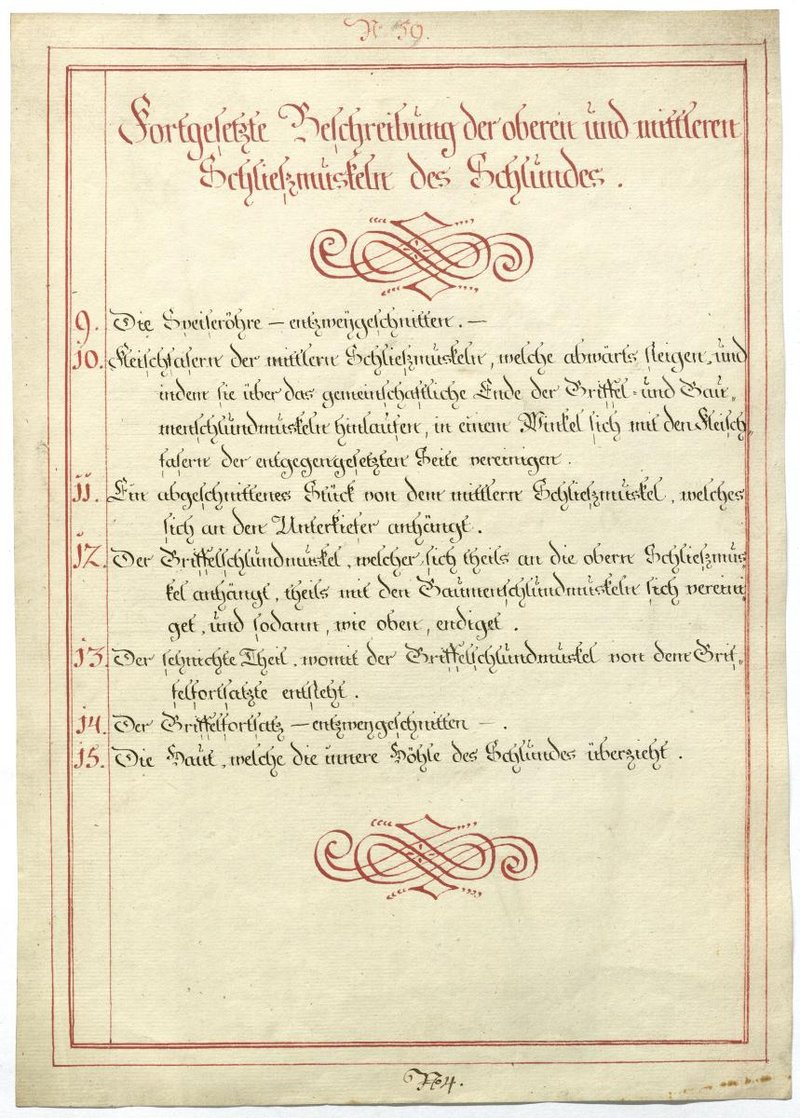 N. 59.
Fortgesetzte Beschreibung der oberen und mittleren
Schließmuskeln des Schlundes.
9. Die Speiseröhre – entzweygeschnitten. –
10. Fleischfasern der mittlern Schließmuskeln, welche abwärts steigen, und
indem sie über das gemeinschaftliche Ende der Griffel- und Gau-
menschlundmuskeln hinlaufen, in einem Winkel sich mit den Fleisch-
fasern der entgegengesetzten Seite vereinigen.
11. Ein abgeschnittenes Stück von dem mittlern Schließmuskel, welches
sich an den Unterkiefer anhängt.
12. Der Griffelschlundmuskel, welcher sich theils an die obern Schließmus-
kel anhängt, theils mit den Gaumenschlundmuskeln sich verein-
get, und sodann, wie oben, endiget.
13. Der sehnichte Theil, womit der Griffelschlundmuskel von dem Grif-
felfortsatzte entsteht.
14. Der Griffelfortsatz – entzweygeschnitten –.
15. Die Haut, welche die innere Höhle des Schlundes überzieht.
No 4.